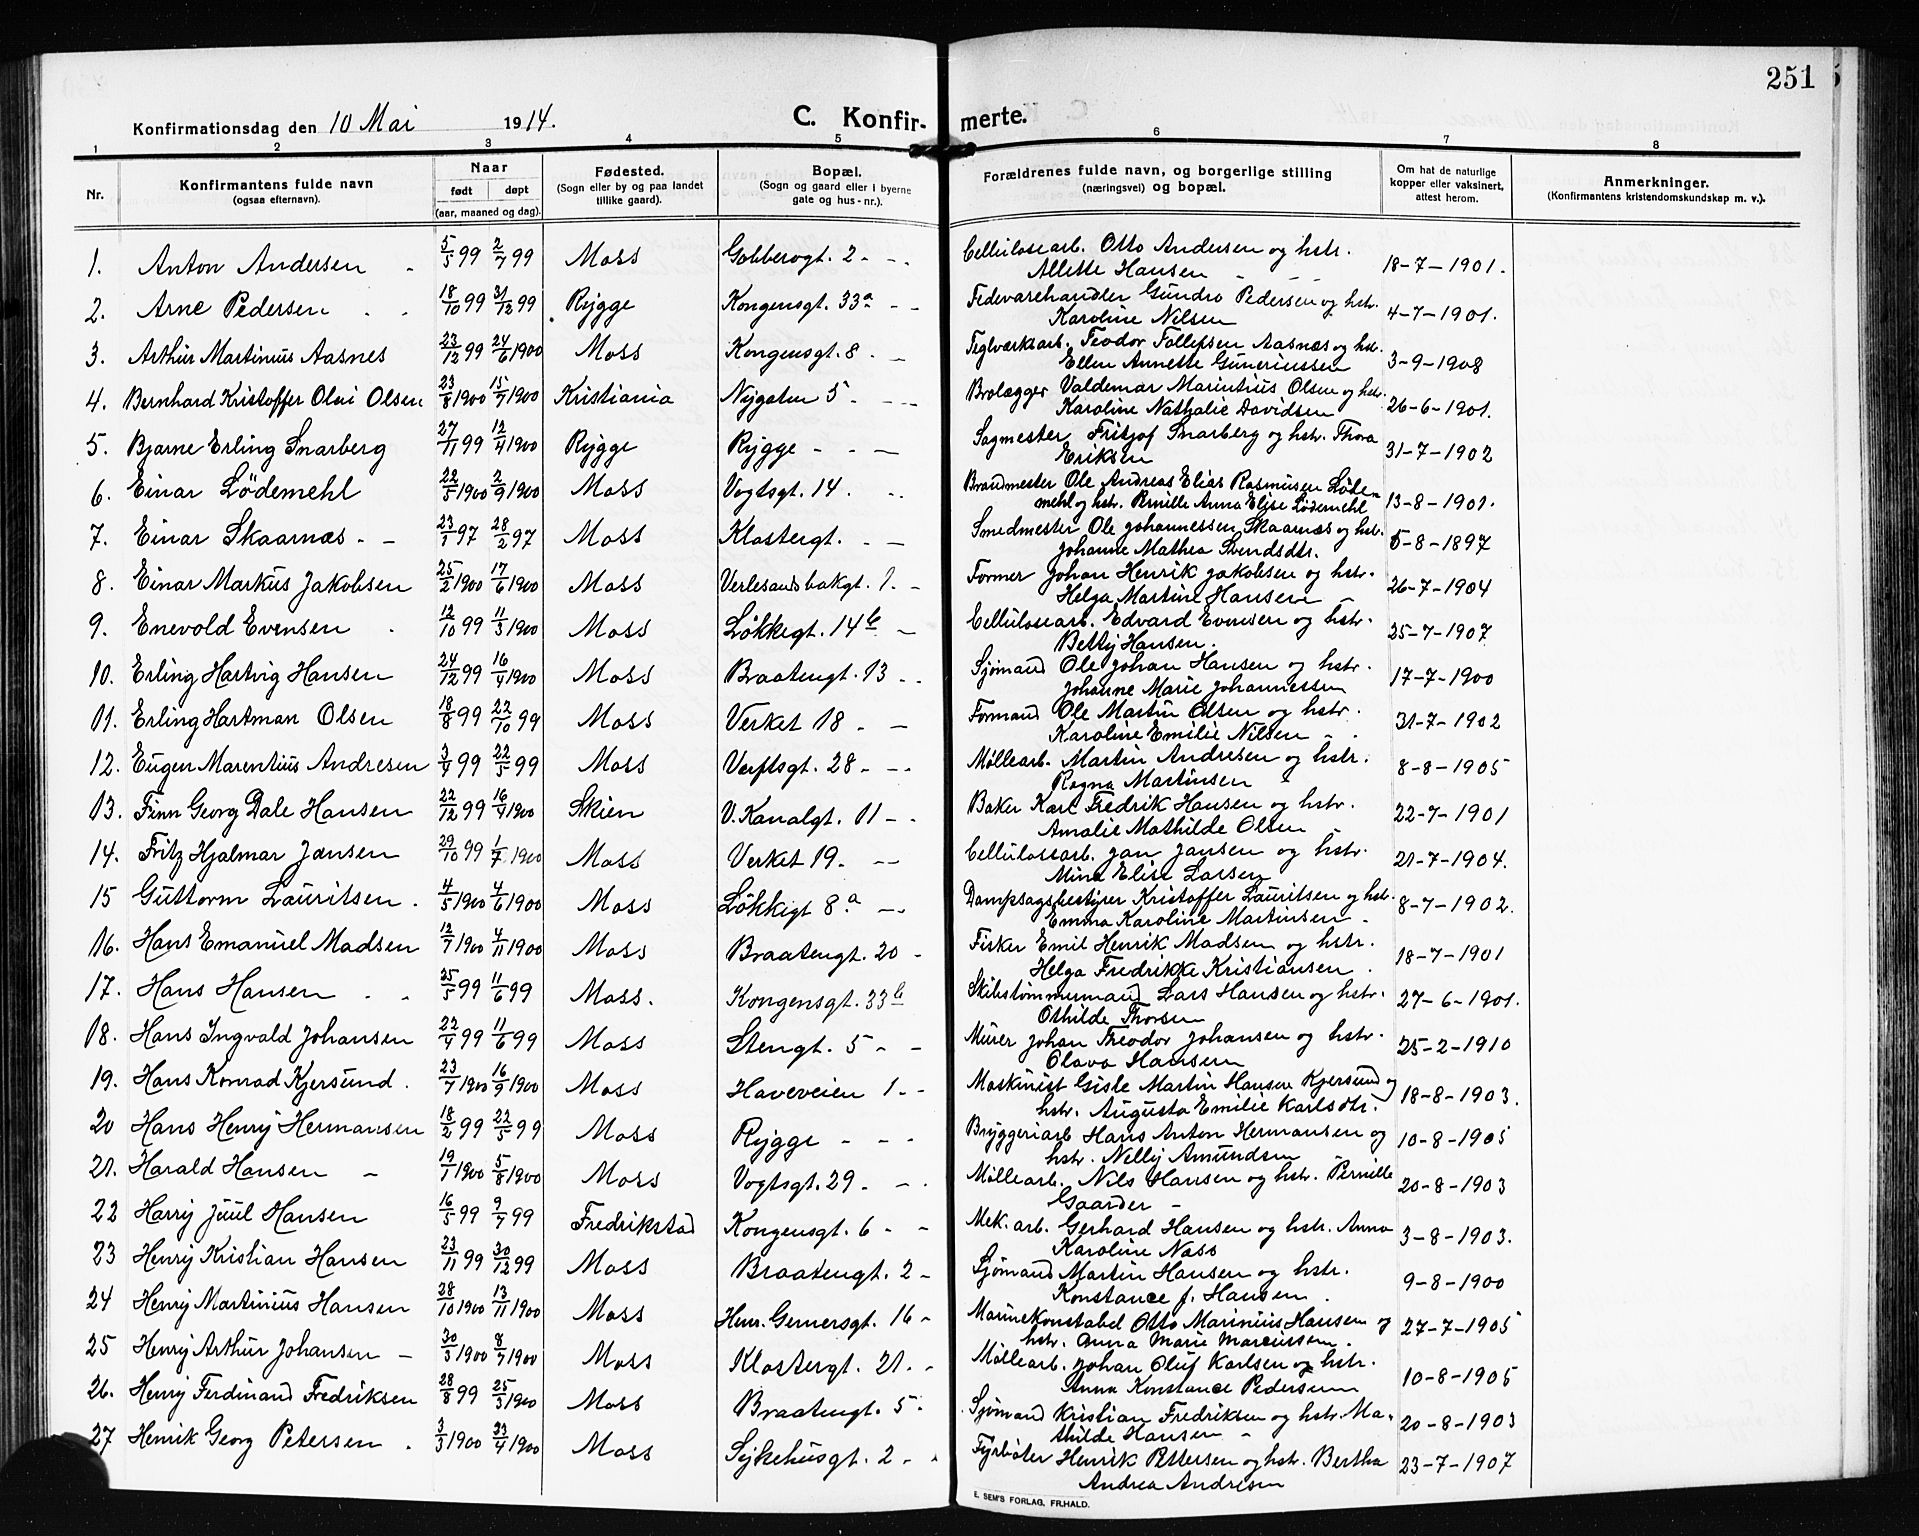 251
Konfirmationsdag den 10 Mai 1914.
C. Konfirmerte.
1 2 3 4 5 6 7 8
Nr. Konfirmantens fulde navn (ogsaa efternavn). Naar født døpt (aar, maaned og dag). Fødested. (Sogn eller by og paa landet tillike gaard). Bopæl. (Sogn og gaard eller i byerne gate og hus-nr.). Forældrenes fulde navn, og borgerlige stilling (næringsvei) og bopæl. Om hat de naturlige kopper eller vaksinert, attest herom. Anmerkninger. (Konfirmantens kristendomskundskap m. v.).
1. Anton Andersen 5/5 99 2/7 99 Moss Gobberogt. 2 Cellulosearb. Otto Andersen og hstr. 18-7-1901.
Allette Hansen
2. Arne Pedersen 18/10 99 31/12 99 Rygge Kongensgt. 33a Fedevarehandler Gundro Pedersen og hstr. 4-7-1901.
Karoline Nilsen
3. Arthur Martinius Aasnes 23/12 99 24/6 1900 Moss Kongensgt. 8 Teglværksarb. Teodor Follefsen Aasnæs og hstr. 3-9-1908
Ellen Annette Guneriussen
4. Bernhard Kristoffer Olai Olsen 23/8 1900 15/7 1900 Kristiania Nygaten 5 Brolægger Valdemar Marintius Olsen og hstr. 26-6-1901.
Karoline Nathalie Davidsen
5. Bjarne Erling Snarberg 27/11 99 12/4 1900 Rygge Rygge Sagmester Fritjof Snarberg og hstr. Thora 31-7-1902
Eriksen
6. Einar Lödemehl 22/5 1900 2/9 1900 Moss Vogtsgt. 14. Brandmester Ole Andreas Elias Rasmusen Löde- 13-8-1901.
mehl og hstr. Pernille Anna Elise Lödemehl
7. Einar Skaarnæs 23/1 97 28/2 97 Moss Klostergt. Smedmester Ole Johannessen Skaarnæs og hstr. 5-8-1897
Johanne Mathea Svendsdtr.
8. Einar Markus Jakobsen 25/2 1900 17/6 1900 Moss Verlesandsbakgt. 1. Former Johan Henrik Jakobsen og hstr. 26-7-1904
Helga Martine Hansen
9. Enevold Evensen 12/10 99 11/3 1900 Moss Løkkegt. 14b Cellulosearb. Edvard Evensen og hstr. 25-7-1907
Betty Hansen.
10. Erling Hartvig Hansen 24/12 99 16/4 1900 Moss Braatengt. 13 Sjømand Ole Johan Hansen og hstr. 17-7-1900
Johanne Marie Johannessen
11. Erling Hartman Olsen 18/8 99 22/10 99 Moss Verket 18 Formand Ole Martin Olsen og hstr. 31-7-1902
Karoline Emilie Nilsen
12. Eugen Marentius Andresen 3/4 99 22/5 99 Moss Verftsgt. 28 Møllearb. Martin Andresen og hstr. 8-8-1905
Ragna Martinsen
13. Finn Georg Dale Hansen 22/12 99 16/4 1900 Skien V. Kanalgt. 11 Baker Karl Fredrik Hansen og hstr. 22-7-1901
Amalie Mathilde Olsen
14. Fritz Hjalmar Jansen 29/10 99 1/7 1900 Moss Verket 19. Cellulosearb. Jan Jansen og hstr. 21-7-1904.
Mina Elise Larsen
15 Guttorm Lauritsen 4/5 1900 4/6 1900 Moss Løkkegt 8a Dampsagsbestyrer Kristoffer Lauritsen og hstr. 8-7-1902.
Emma Karoline Martinsen
16. Hans Emanuel Madsen 12/7 1900 4/11 1900 Moss Braatengt. 20 Fisker Emil Henrik Madsen og hstr. 18-7-1901
Helga Fredrikke Kristiansen
17. Hans Hansen 25/5 99 11/6 99 Moss. Kongensgt. 33b Skibstømmermand Lars Hansen og hstr. 27-6-1901.
Othilde Thorsen
18. Hans Ingvald Johansen 22/4 99 11/6 99 Moss Stengt. 5 Murer Johan Teodor Johansen og hstr. 25-2-1910
Olava Hansen
19. Hans Konrad Kjersund. 23/7 1900 16/9 1900 Moss Haveveien 1 Maskinist Gisle Martin Hansen Kjersund og 18-8-1903.
hstr. Augusta Emilie Karlsdtr.
20 Hans Henry Hermansen 18/2 99 22/5 99 Moss Rygge Bryggeriarb Hans Anton Hermansen og 10-8-1905
hstr. Nelly Amundsen
21. Harald Hansen 19/1 1900 5/8 1900 Moss Vogtsgt. 29 Møllearb. Nils Hansen og hstr. Pernille 20-8-1903
Gaarder
22 Harry Juul Hansen 16/5 99 9/7 99 Fredrikstad Kongensgt. 6 Mek. arb. Gerhard Hansen og hstr. Anna 3-8-1903.
Karoline Næss
23 Henry Kristian Hansen 23/11 99 30/12 99 Moss Braatengt. 2 Sjømand Martin Hansen og hstr. 9-8-1900
Konstance f. Hansen
24 Henry Martinius Hansen 28/10 1900 13/11 1900 Moss Henr. Gernersgt. 16 Marinekonstabel Otto Marinius Hansen og 27-7-1905
hstr. Anna Marie Marcussen.
25 Henry Arthur Johansen 30/3 1900 8/7 1900 Moss Klostergt. 21. Møllearb. Johan Oluf Karlsen og hstr. 10-8-1905
Anna Konstance Pedersen
26. Henry Ferdinand Fredriksen 28/8 99 25/3 1900 Moss Braatengt. 5 Sjømand Kristian Fredriksen og hstr. Ma- 20-8-1903
thilde Hansen
27 Henrik Georg Petersen 3/3 1900 23/4 1900 Moss Sykehusgt. 2 Fyrbøter Henrik Pettersen og hstr. Bertha 23-7-1907
Andrea Andresen
E. SEM'S FORLAG, FR.HALD.